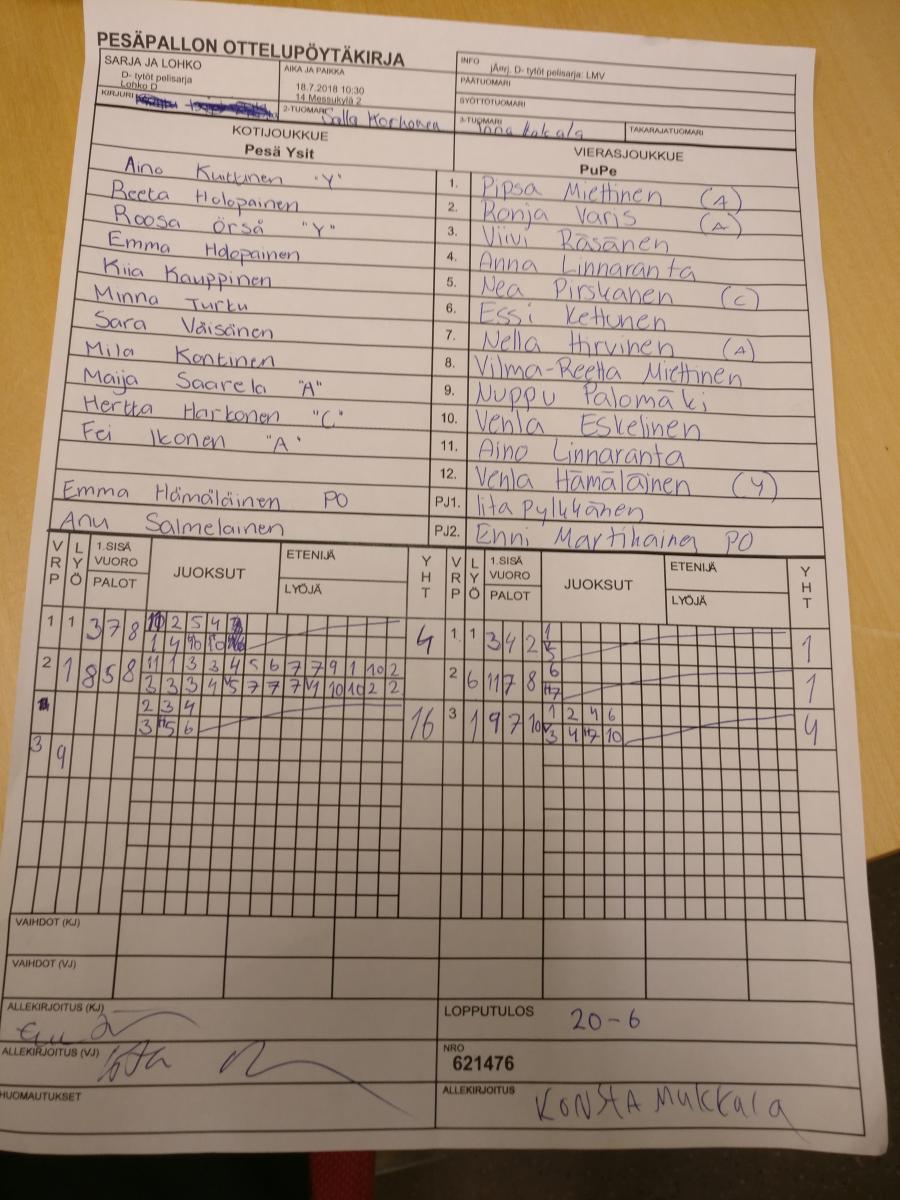 PESÄPALLON OTTELUPÖYTÄKIRJA
SARJA JA LOHKO
D- tytöt pelisarja
Lohko D
AIKA JA PAIKKA
18.7.2018 10:30
14 Messukylä 2
INFO
jÄrj. D- tytöt pelisarja: LMV
PÄÄTUOMARI
SYÖTTÖTUOMARI
KIRJURI
2-TUOMARI Salla Korhonen
3-TUOMARI
TAKARAJATUOMARI
KOTIJOUKKUE
Pesä Ysit
VIERASJOUKKUE
PuPe
Aino Kuittinen "Y" 1. Pipsa Miettinen (A)
Reeta Holopainen 2. Ronja Varis (A)
Roosa Örså "Y" 3. Viivi Räsänen
Emma Holopainen 4. Anna Linnaranta
Kiia Kauppinen 5. Nea Pirskanen (C)
Minna Turku 6. Essi Kettunen
Sara Väisänen 7. Nella Hirvinen (A)
Mila Kontinen 8. Vilma-Reetta Miettinen
Maija Saarela "A" 9. Nuppu Palomäki
Hertta Harkonen "C" 10. Venla Eskelinen
Fei Ikonen "A" 11. Aino Linnaranta
12. Venla Hämäläinen (Y)
Emma Hämäläinen PO PJ1. Iita Pylkkänen
Anu Salmelainen PJ2. Enni Martikainen PO
VRP LYÖ 1.SISÄ VUORO PALOT JUOKSUT ETENIJÄ LYÖJÄ YHT VRP LYÖ 1.SISÄ VUORO PALOT JUOKSUT ETENIJÄ LYÖJÄ YHT
1 1 3 7 8 2 5 4 4 1. 1 3 4 2 1 1
1 4 10 V5
2 1 8 5 8 11 1 3 3 4 5 6 7 7 9 1 10 2 2 6 11 7 8 6 1
3 3 3 4 V5 7 7 7 V1 10 10 2 2 H7
2 3 4 16 3 1 9 7 10 1 2 4 6 4
3 H5 6 V3 4 H7 10
3 9
VAIHDOT (KJ)
VAIHDOT (VJ)
ALLEKIRJOITUS (KJ)
LOPPUTULOS 20-6
ALLEKIRJOITUS (VJ)
NRO
621476
HUOMAUTUKSET
ALLEKIRJOITUS KONSTA MUKKALA